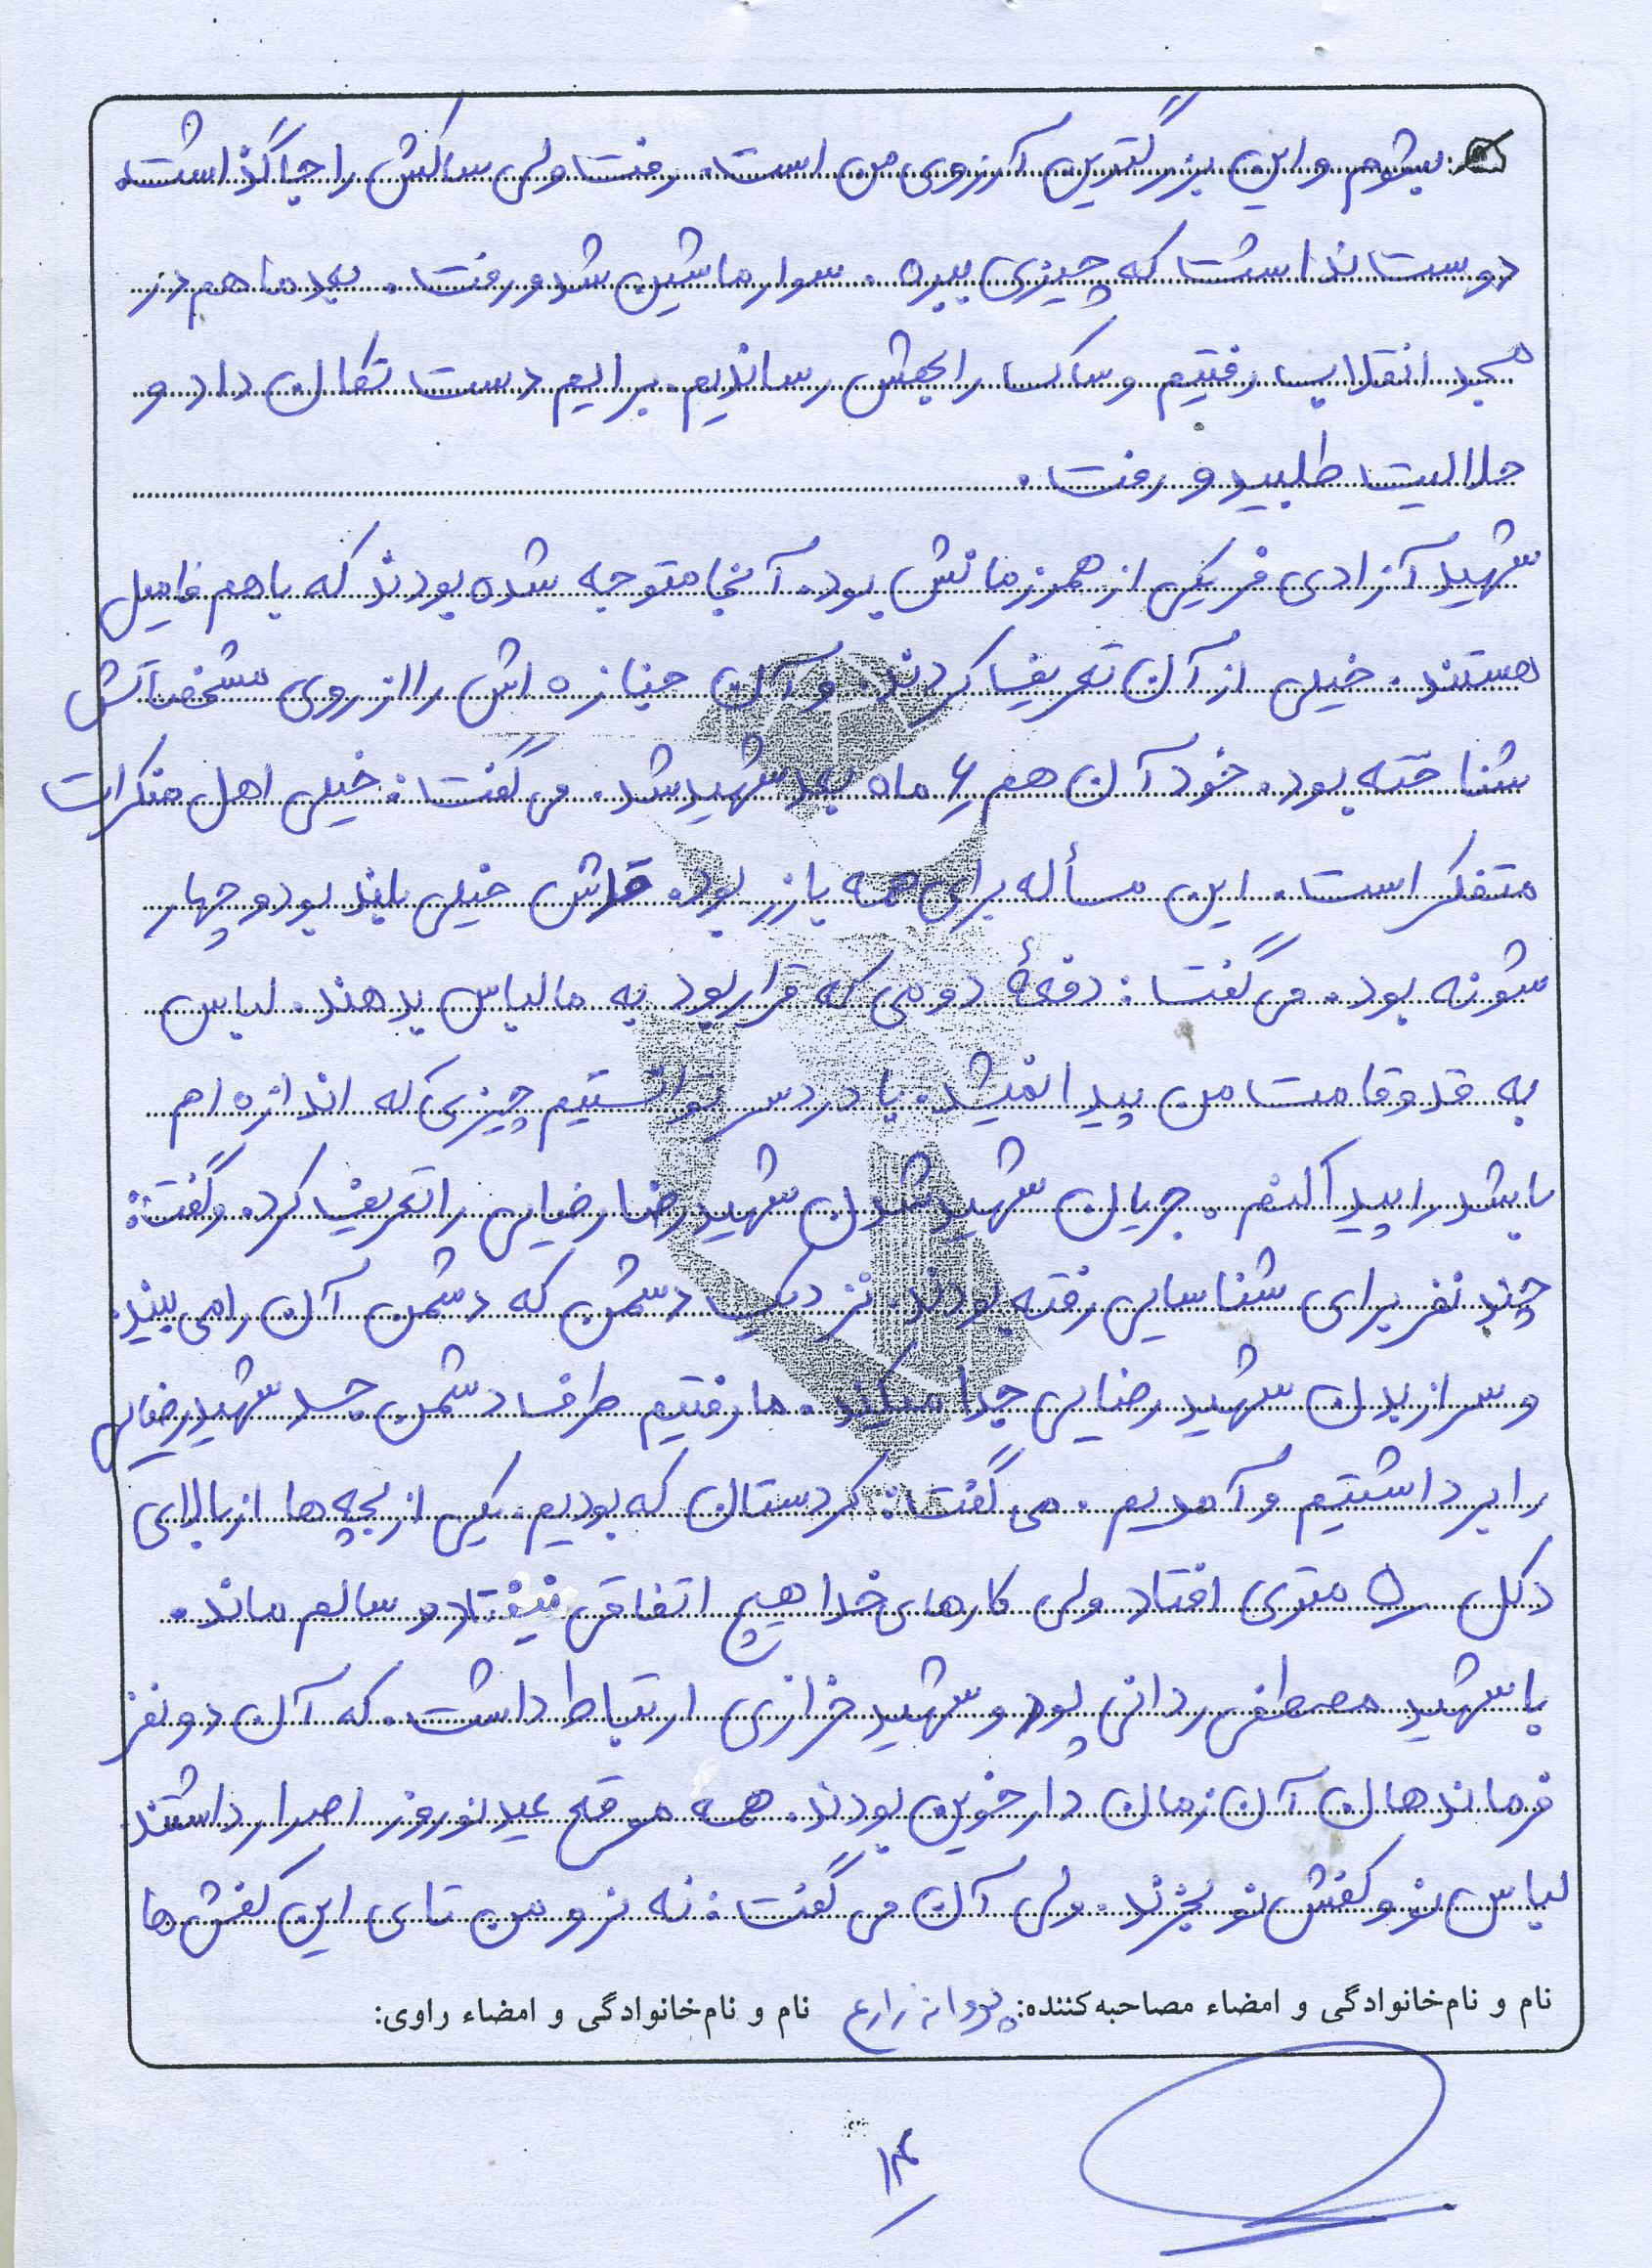 بشوم و این بزرگترین آرزوی من است. رفت ولی ساکش را جا گذاشت.
دوست نداشت که چیزی ببره. سوار ماشین شد و رفت. بعد ما هم در
مسجد انقلاب رفتیم و ساک را بهش رساندیم. برایم دست تکان داد و
حلالیت طلبید و رفت.
شهید آزادی فر یکی از همرزمانش بود. آنجا متوجه شده بودند که با هم فامیل
هستند. خیلی از آن تعریف کردند. و آن جنازه اش را از روی مشخصاتش
شناخته بود. خود آن هم ۶ ماه بعد شهید شد. می گفت: خیلی اهل منکرات
متفکر است. این مسأله برای همه بارز بود. قدش خیلی بلند بود و چهار
شونه بود. می گفت: دفعهٔ دومی که قرار بود به ما لباس بدهند. لباس
به قد و قامت من پیدا نمیشد. با دردسر توانستیم چیزی که اندازه ام
باشد را پیدا کنم. جریان شهید شدن شهید رضا رضایی را تعریف کرد. و گفت:
چند نفر برای شناسایی رفته بودند. نزدیک دشمن که دشمن آن را می بیند.
و سر از بدن شهید رضایی جدا میکند. ما رفتیم طرف دشمن جسد شهید رضایی
را برداشتیم و آمدیم. می گفت: کردستان که بودیم. یکی از بچه ها از بالای
دکل ۵۰ متری افتاد ولی کارهای خدا هیچ اتفاقی نیفتاد و سالم ماند.
با شهید مصطفی ردانی پور و شهید خرازی ارتباط داشت. که آن دو نفر
فرماندهان آن زمان دارخوین بودند. همه موقع عید نوروز اصرار داشتند
لباس نو و کفش نو بخرند. ولی آن می گفت: نه نرو من تا ی این کفش ها
نام و نام‌خانوادگی و امضاء مصاحبه‌کننده: پروانه زارع نام و نام‌خانوادگی و امضاء راوی:
۱۴